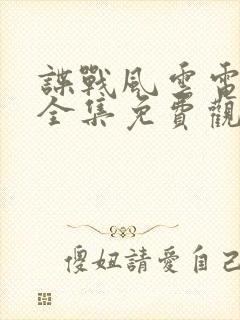 諜戰風雲電
全集免費觀
傻妞請愛自己